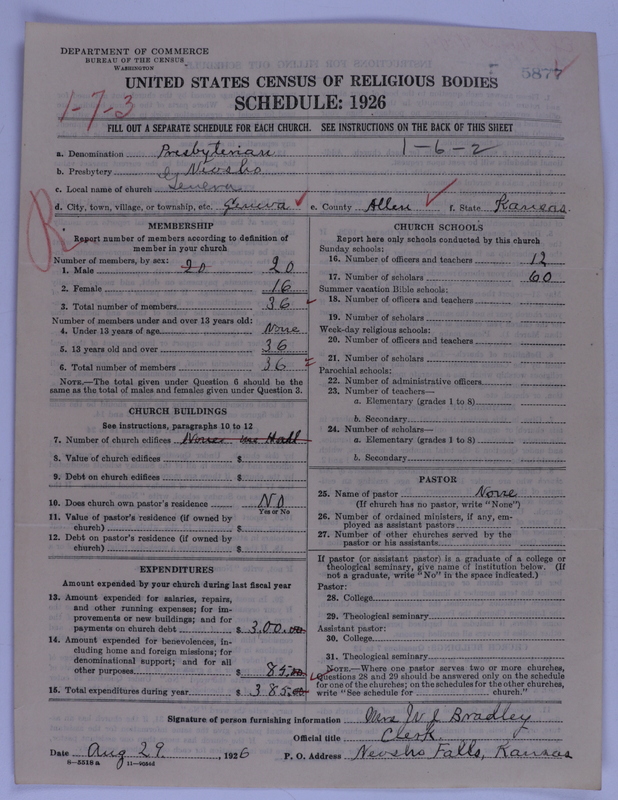 DEPARTMENT OF COMMERCE
BUREAU OF THE CENSUS
WASHINGTON
5877
UNITED STATES CENSUS OF RELIGIOUS BODIES
SCHEDULE: 1926
1-7-3
FILL OUT A SEPARATE SCHEDULE FOR EACH CHURCH. SEE INSTRUCTIONS ON THE BACK OF THIS SHEET
1-6-2
a. Denomination Presbyterian
b. Presbytery Neosho
c. Local name of church Geneva
d. City, town, village, or township, etc. Geneva e. County Allen f. State Kansas.
MEMBERSHIP
Report number of members according to definition of member in your church
Number of members, by sex:
1. Male 20 20
2. Female 16
3. Total number of members 36
Number of members under and over 13 years old:
4. Under 13 years of age None
5. 13 years old and over 36
6. Total number of members 36
NOTE.—The total given under Question 6 should be the
same as the total of males and females given under Question 3.
CHURCH BUILDINGS
See instructions, paragraphs 10 to 12
7. Number of church edifices None use Hall
8. Value of church edifices $
9. Debt on church edifices $
10. Does church own pastor's residence NO
Yes or No
11. Value of pastor's residence (if owned by
church) $
12. Debt on pastor's residence (if owned by
church) $
EXPENDITURES
Amount expended by your church during last fiscal year
13. Amount expended for salaries, repairs,
and other running expenses; for im-
provements or new buildings; and for
payments on church debt $ 300.00
14. Amount expended for benevolences, in-
cluding home and foreign missions; for
denominational support; and for all
other purposes $ 85.00
15. Total expenditures during year $ 385.00
CHURCH SCHOOLS
Report here only schools conducted by this church
Sunday schools:
16. Number of officers and teachers 12
17. Number of scholars 60
Summer vacation Bible schools:
18. Number of officers and teachers
19. Number of scholars
Week-day religious schools:
20. Number of officers and teachers
21. Number of scholars
Parochial schools:
22. Number of administrative officers
23. Number of teachers—
a. Elementary (grades 1 to 8)
b. Secondary
24. Number of scholars—
a. Elementary (grades 1 to 8)
b. Secondary
PASTOR
25. Name of pastor None
(If church has no pastor, write "None")
26. Number of ordained ministers, if any, em-
ployed as assistant pastors
27. Number of other churches served by the
pastor or his assistants
If pastor (or assistant pastor) is a graduate of a college or
theological seminary, give name of institution below. (If
not a graduate, write "No" in the space indicated.)
Pastor:
28. College
29. Theological seminary
Assistant pastor:
30. College
31. Theological seminary
NOTE.—Where one pastor serves two or more churches,
Questions 28 and 29 should be answered only on the schedule
for one of the churches; on the schedules for the other churches,
write "See schedule for church."
Signature of person furnishing information Mrs W J Bradley
Official title Clerk
Date Aug 29, 1926 P. O. Address Neosho Falls, Kansas
8—5518 a